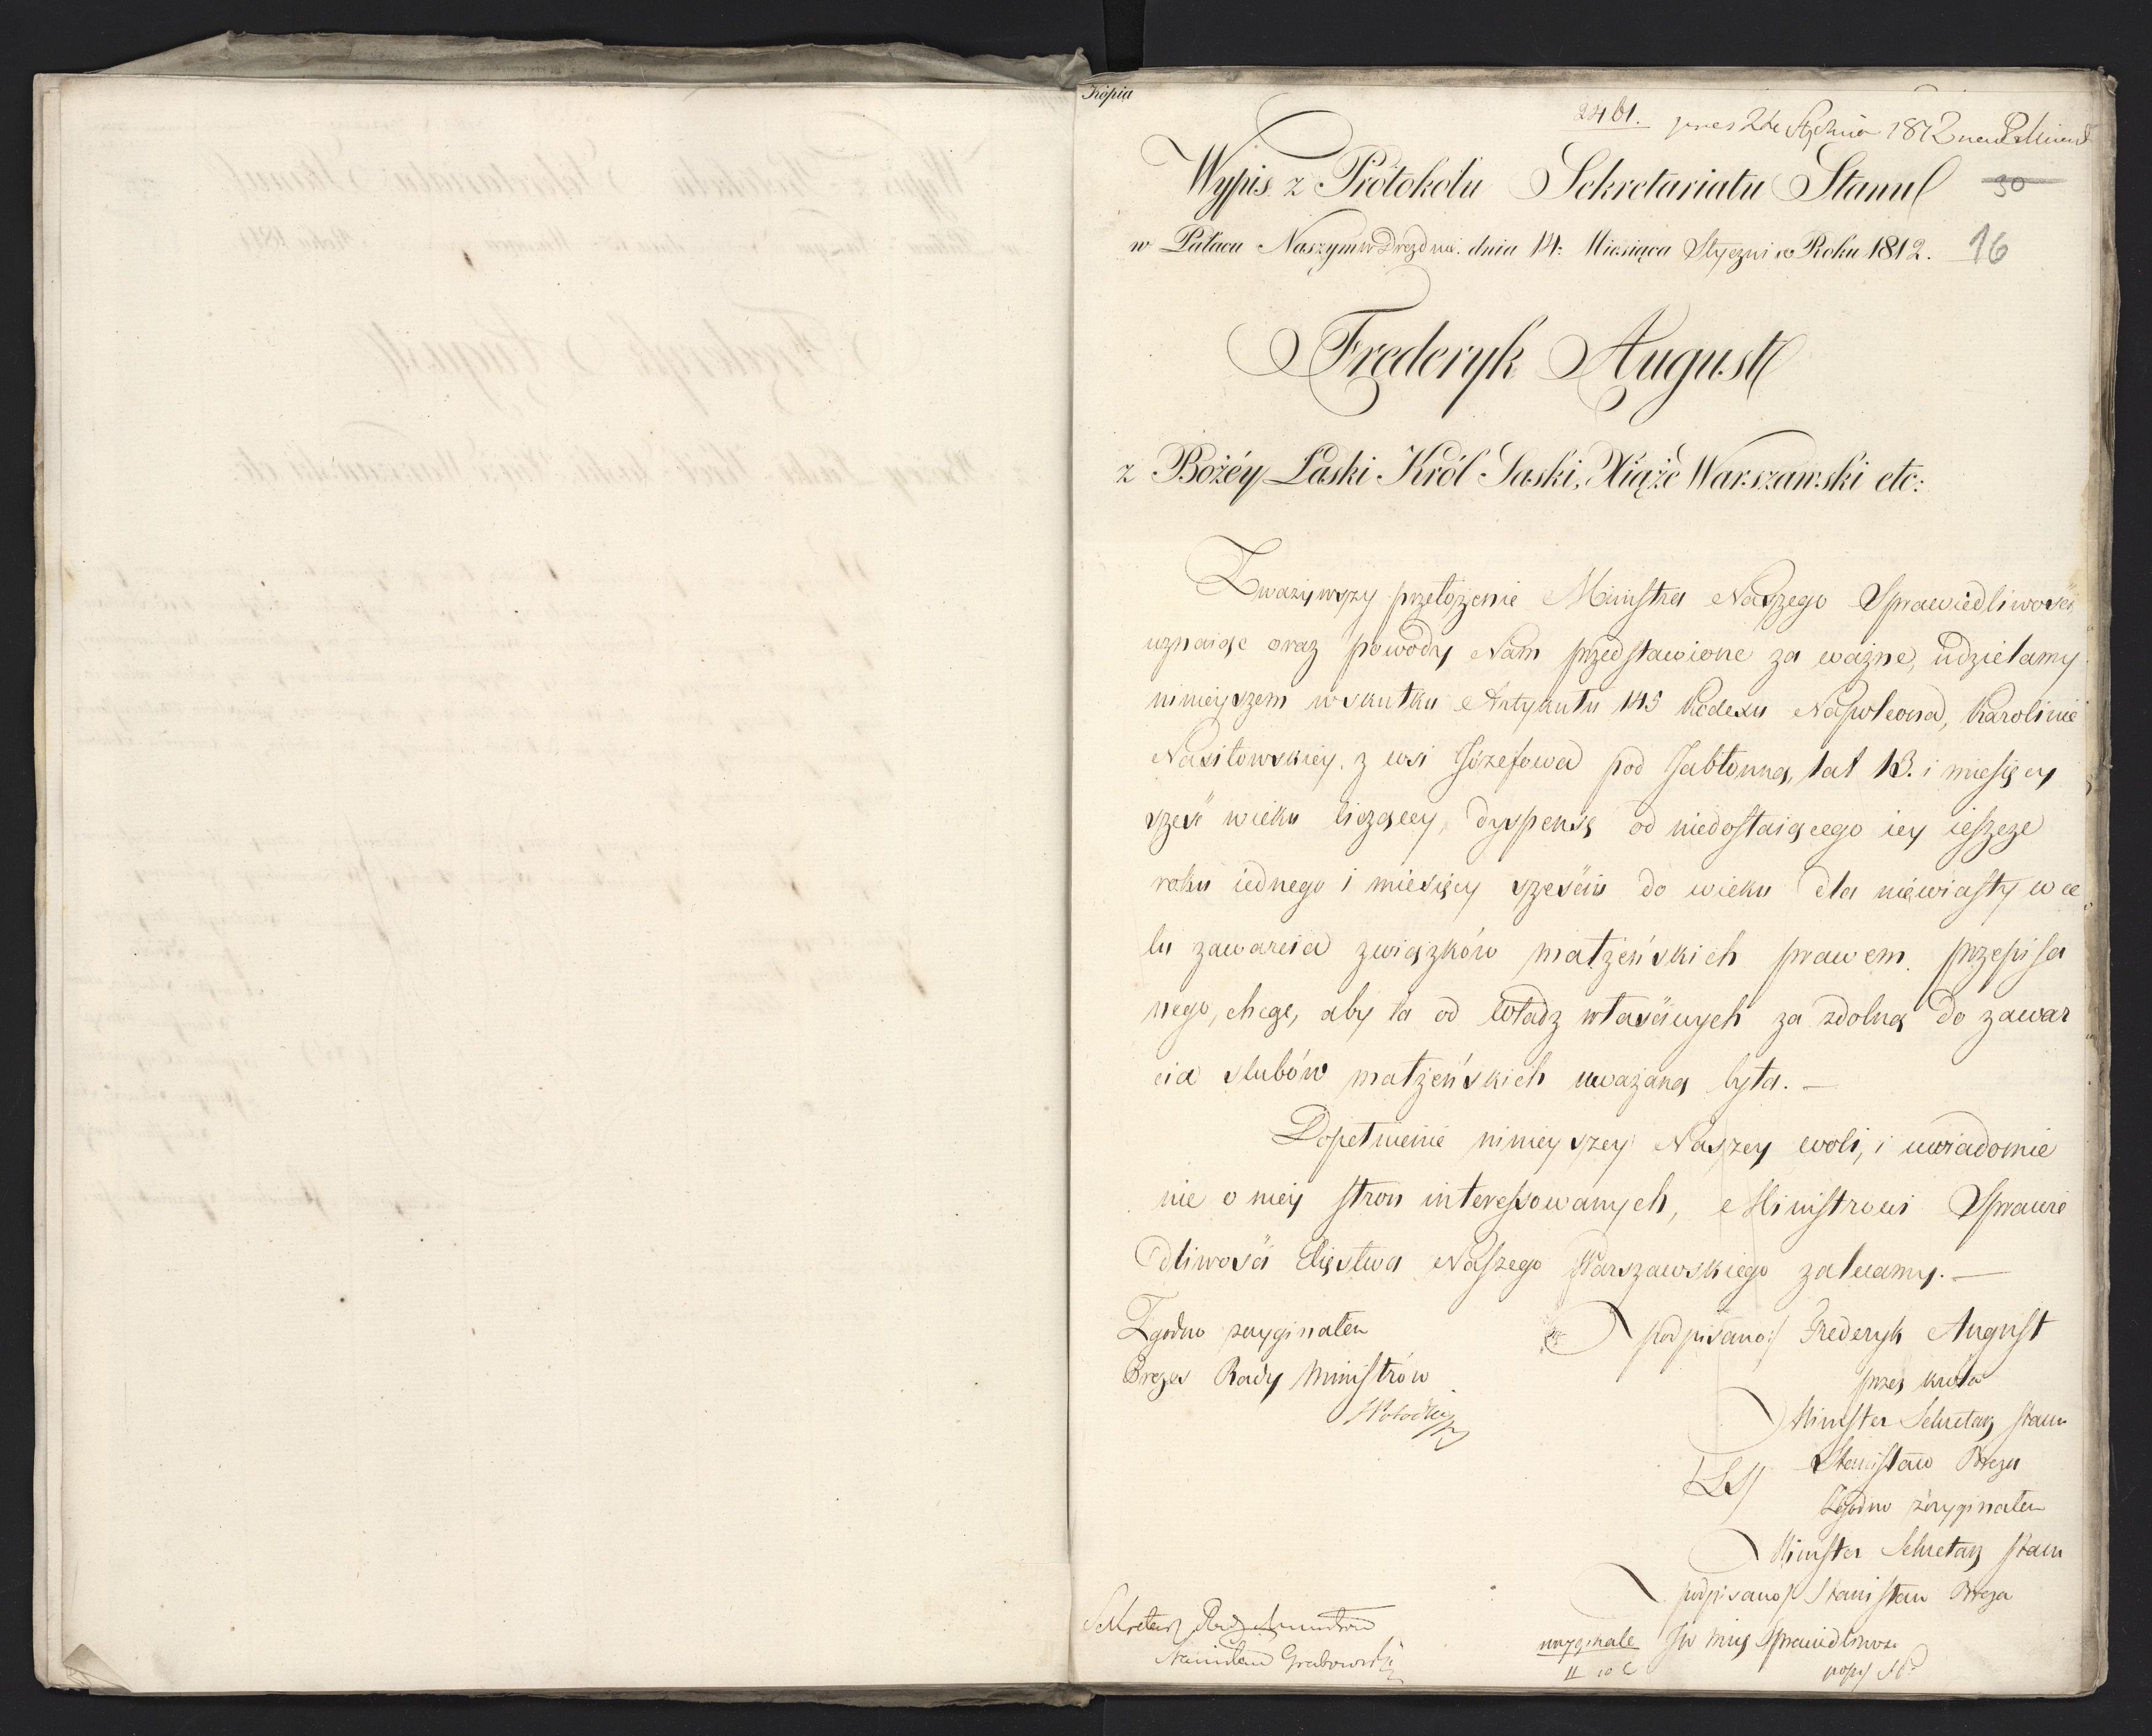 Kopia
2461. pres 24 Stycznia 1812
Wypis z Protokołu Sekretariatu Stanu
30
w Pałacu Naszym w Dreznie. dnia 14: Miesiąca Stycznia Roku 1812.
16
Frederyk August
z Bożéy Łaski Król Saski, Xiąże Warszawski etc:
Zważywszy przełożenie Ministra Naszego Sprawiedliwości
uznaiąc oraz powody Nam przedstawione za ważne, udzielamy
ninieyszem w skutku Artykułu 145 Kodexu Napoleona, Karolinie
Nasiłowskiey. z wsi Józefowa pod Jabłonną, lat 13. i miesięcy
sześć wieku liczącey, dyspensę od niedostaiącego iey ieszcze
roku iednego i miesięcy sześciu do wieku dla niewiasty w ce
lu zawarcia związków małżeńskich prawem przepisa
nego, chcąc, aby ta od Władz właściwych za zdolną do zawar
cia slubów małżeńskich uważaną była. —
Dopełnienie ninieyszey Naszey woli, i uwiadomie
nie o niey stron interessowanych, Ministrowi Sprawie
dliwości Xięstwa Naszego Warszawskiego zalecamy. —
Zgodno z oryginałem
podpisano:/ Frederyk August
Prezes Rady Ministrów
przez Króla
Minister Sekretarz Stanu
Stanisław Breza
/LS/
Zgodno z oryginałem
Minister Sekretarz Stanu
podpisano/ Stanisław Breza
Sekretarz Rady Ministrów
Grabowski
w oryginale
Sprawiedliwości